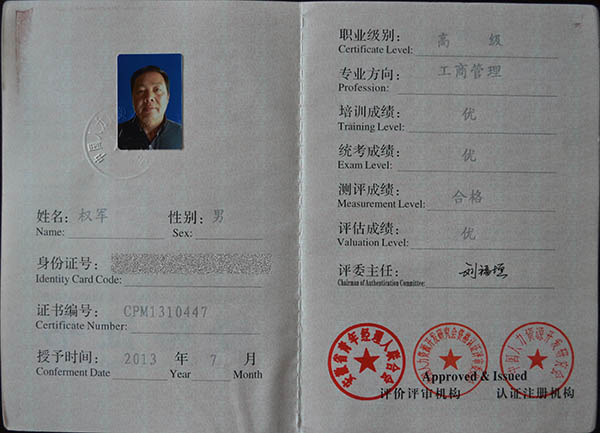 姓名: 权军 性别: 男
Name: Sex:
身份证号:
Identity Card Code:
证书编号: CPM1310447
Certificate Number:
授予时间: 2013 年 7 月
Conferment Date Year Month
职业级别: 高 级
Certificate Level:
专业方向: 工商管理
Profession:
培训成绩: 优
Training Level:
统考成绩: 优
Exam Level:
测评成绩: 合格
Measurement Level:
评估成绩: 优
Valuation Level:
评委主任:
Chairman of Authentication Committee:
安徽省青年经理人联合会
中国人力资源开发研究会
Approved & Issued
评价评审机构 认证注册机构